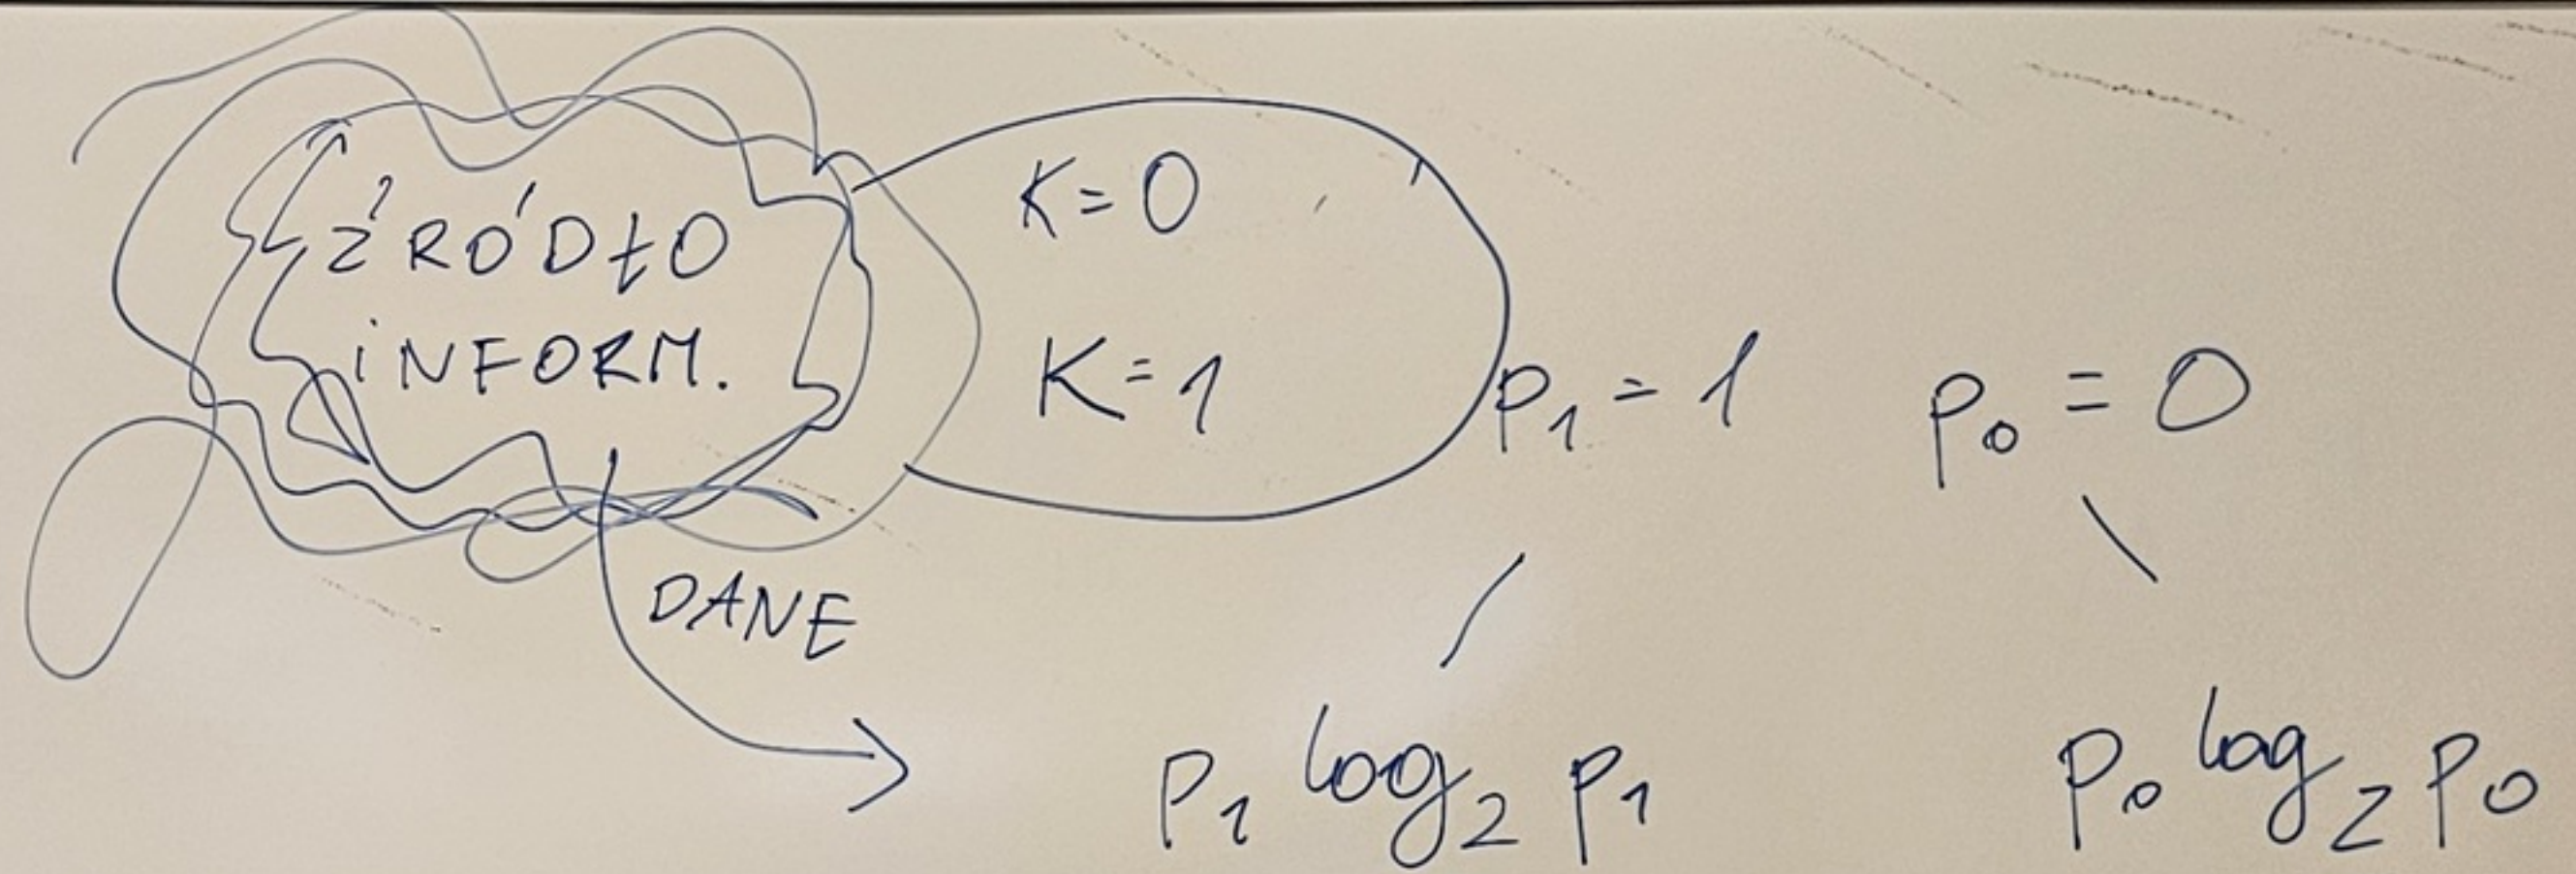 ŹRÓDŁO
INFORM.
K=0
K=1
p₁ = 1
p₀ = 0
DANE
p₁ log₂ p₁
p₀ log₂ p₀